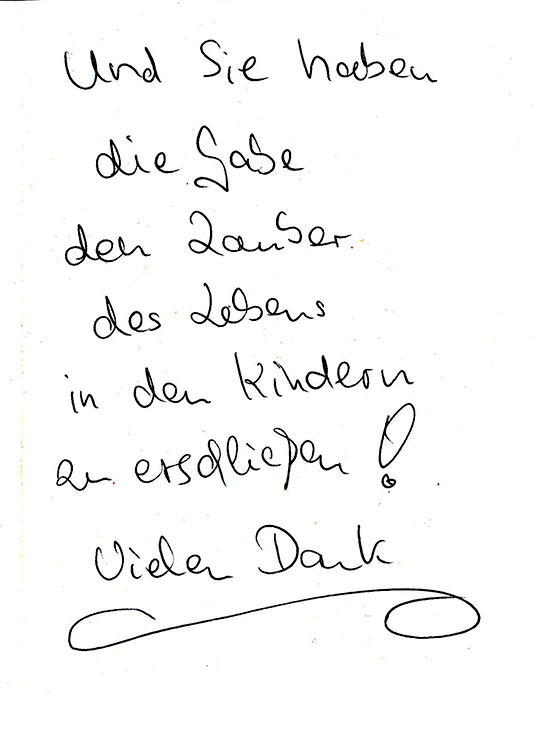 Und Sie haben
die Gabe
den Zauber
des Lebens
in den Kindern
zu erschließen!
Vielen Dank